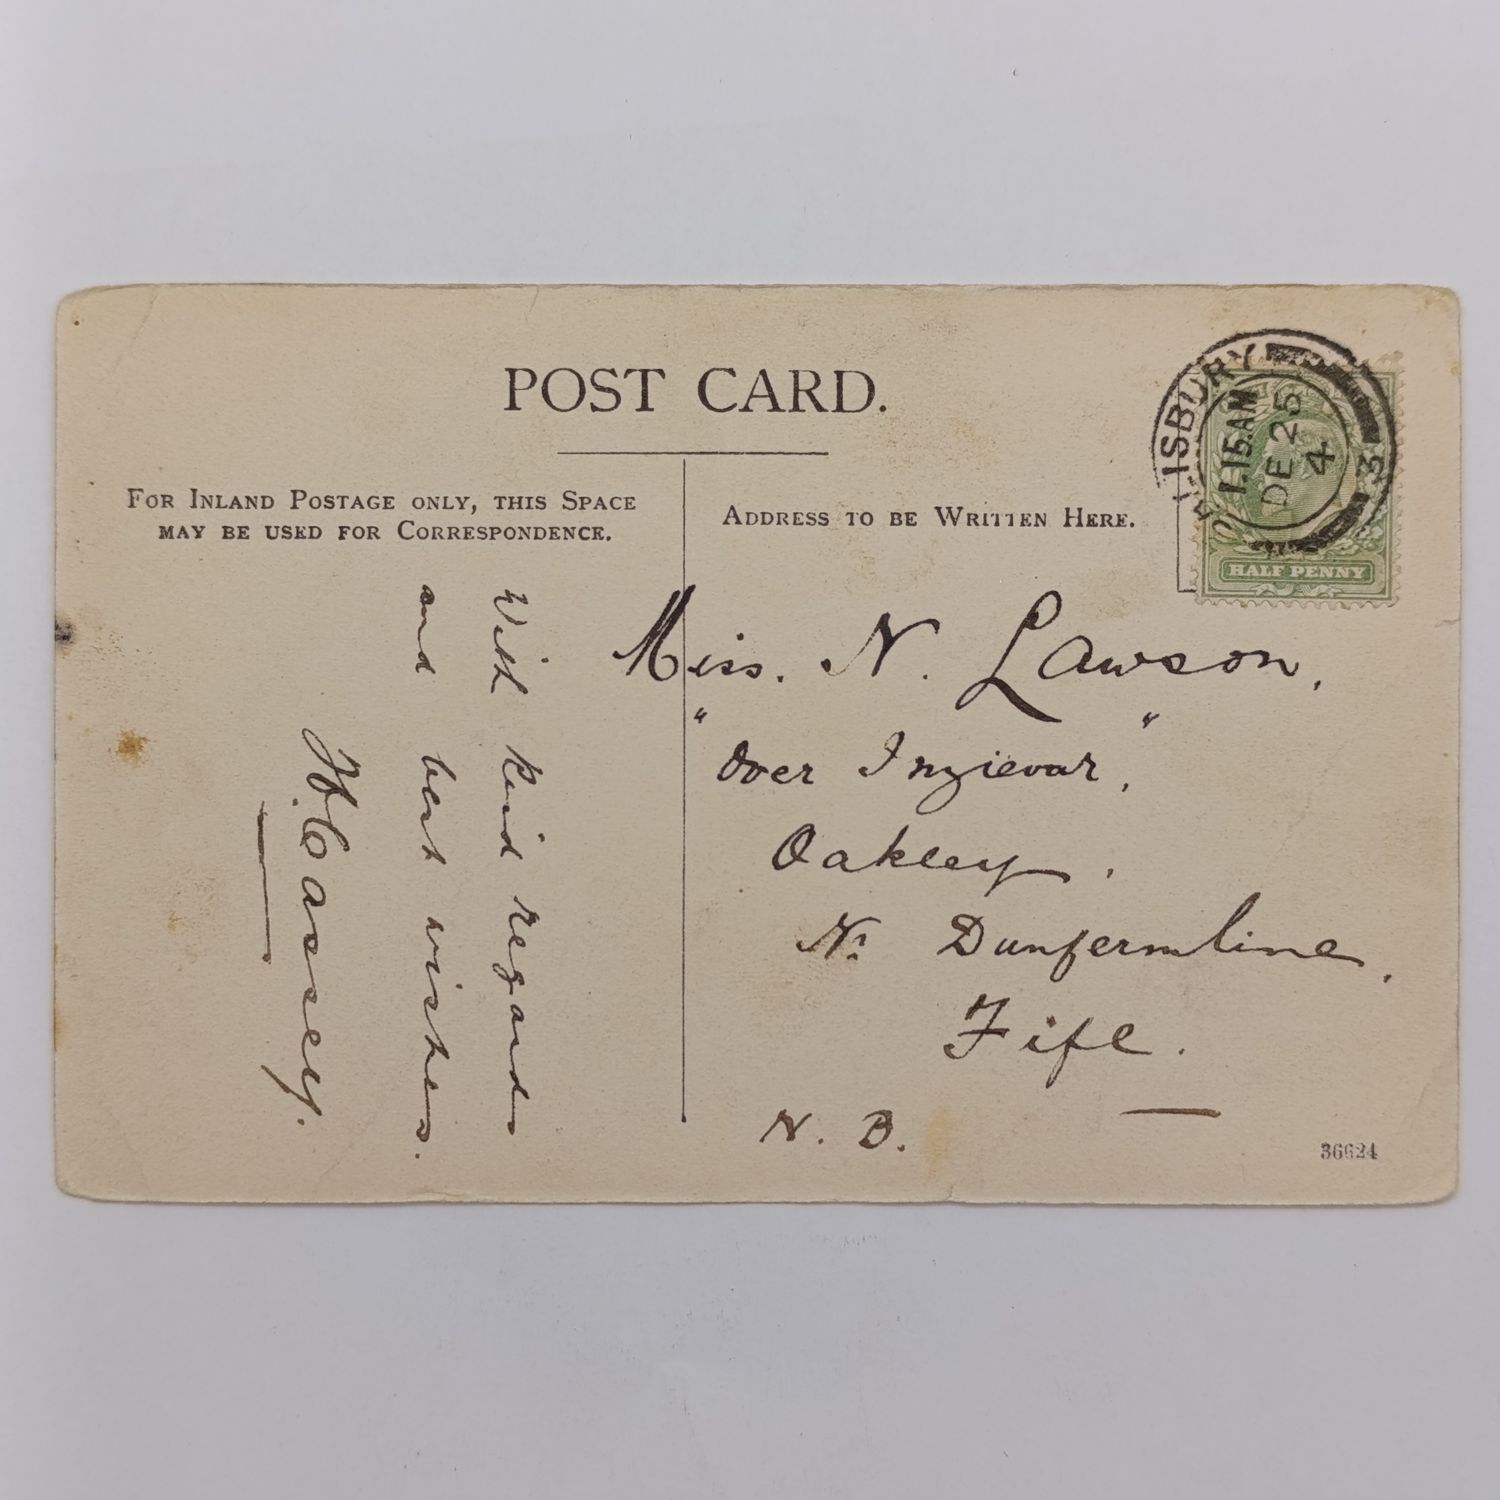 POST CARD.
FOR INLAND POSTAGE ONLY, THIS SPACE
MAY BE USED FOR CORRESPONDENCE.
ADDRESS TO BE WRITTEN HERE.
ISBURY
1.15AM
DE 25
4
3
HALF PENNY
With kind regards
and best wishes.
H. Cassey.
Miss. N. Lawson,
"Over Inzievar",
Oakley.
Nr. Dunfermline,
Fife.
N. B.
36624